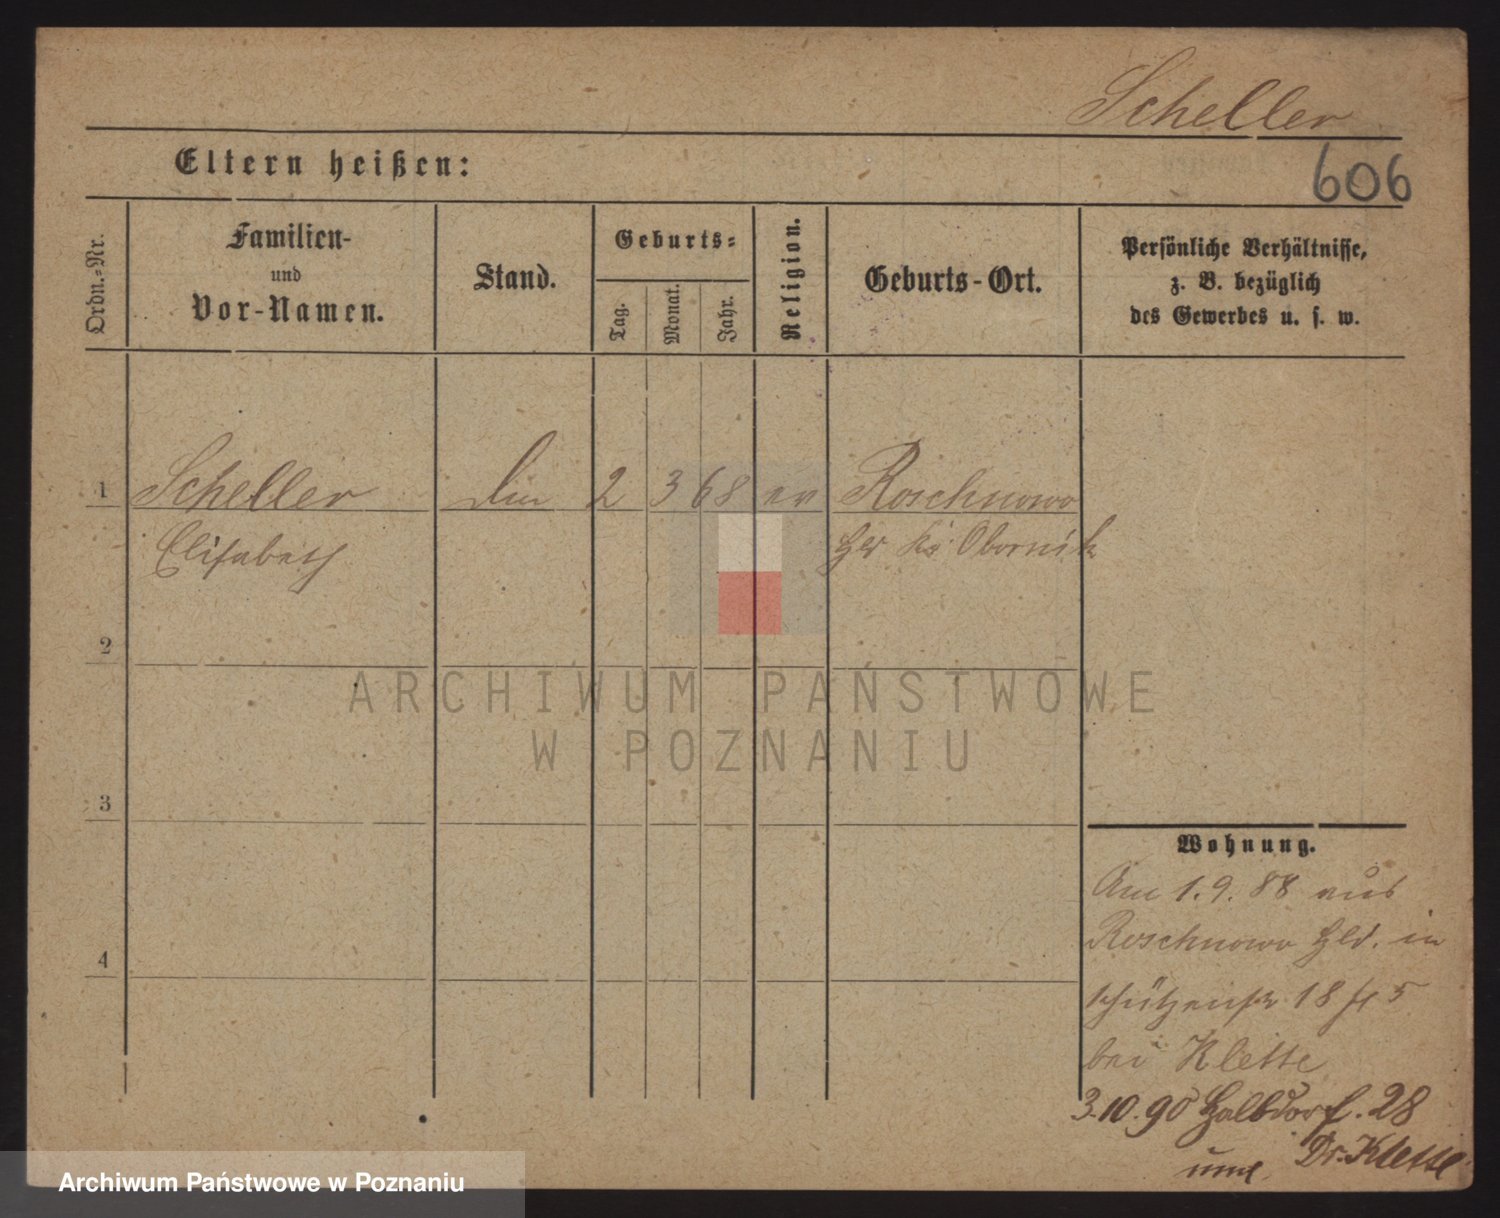 Scheller
Eltern heißen:
606
Ordn.=Nr.
Familien-
und
Vor-Namen.
Stand.
Geburts=
Tag.
Monat.
Jahr.
Religion.
Geburts-Ort.
Persönliche Verhältnisse,
z. B. bezüglich
des Gewerbes u. s. w.
1
Scheller
2 3 68 ev
Roschnowo
Elisabeth
Hld Ks Obornik
2
ARCHIWUM PAŃSTWOWE
W POZNANIU
3
Wohnung.
Am 1.9.88 aus
Roschnowo Hld. in
4
Schützenstr 18
bei Klette
3.10.90 Halbdorf. 28
Dr. Klette
Archiwum Państwowe w Poznaniu